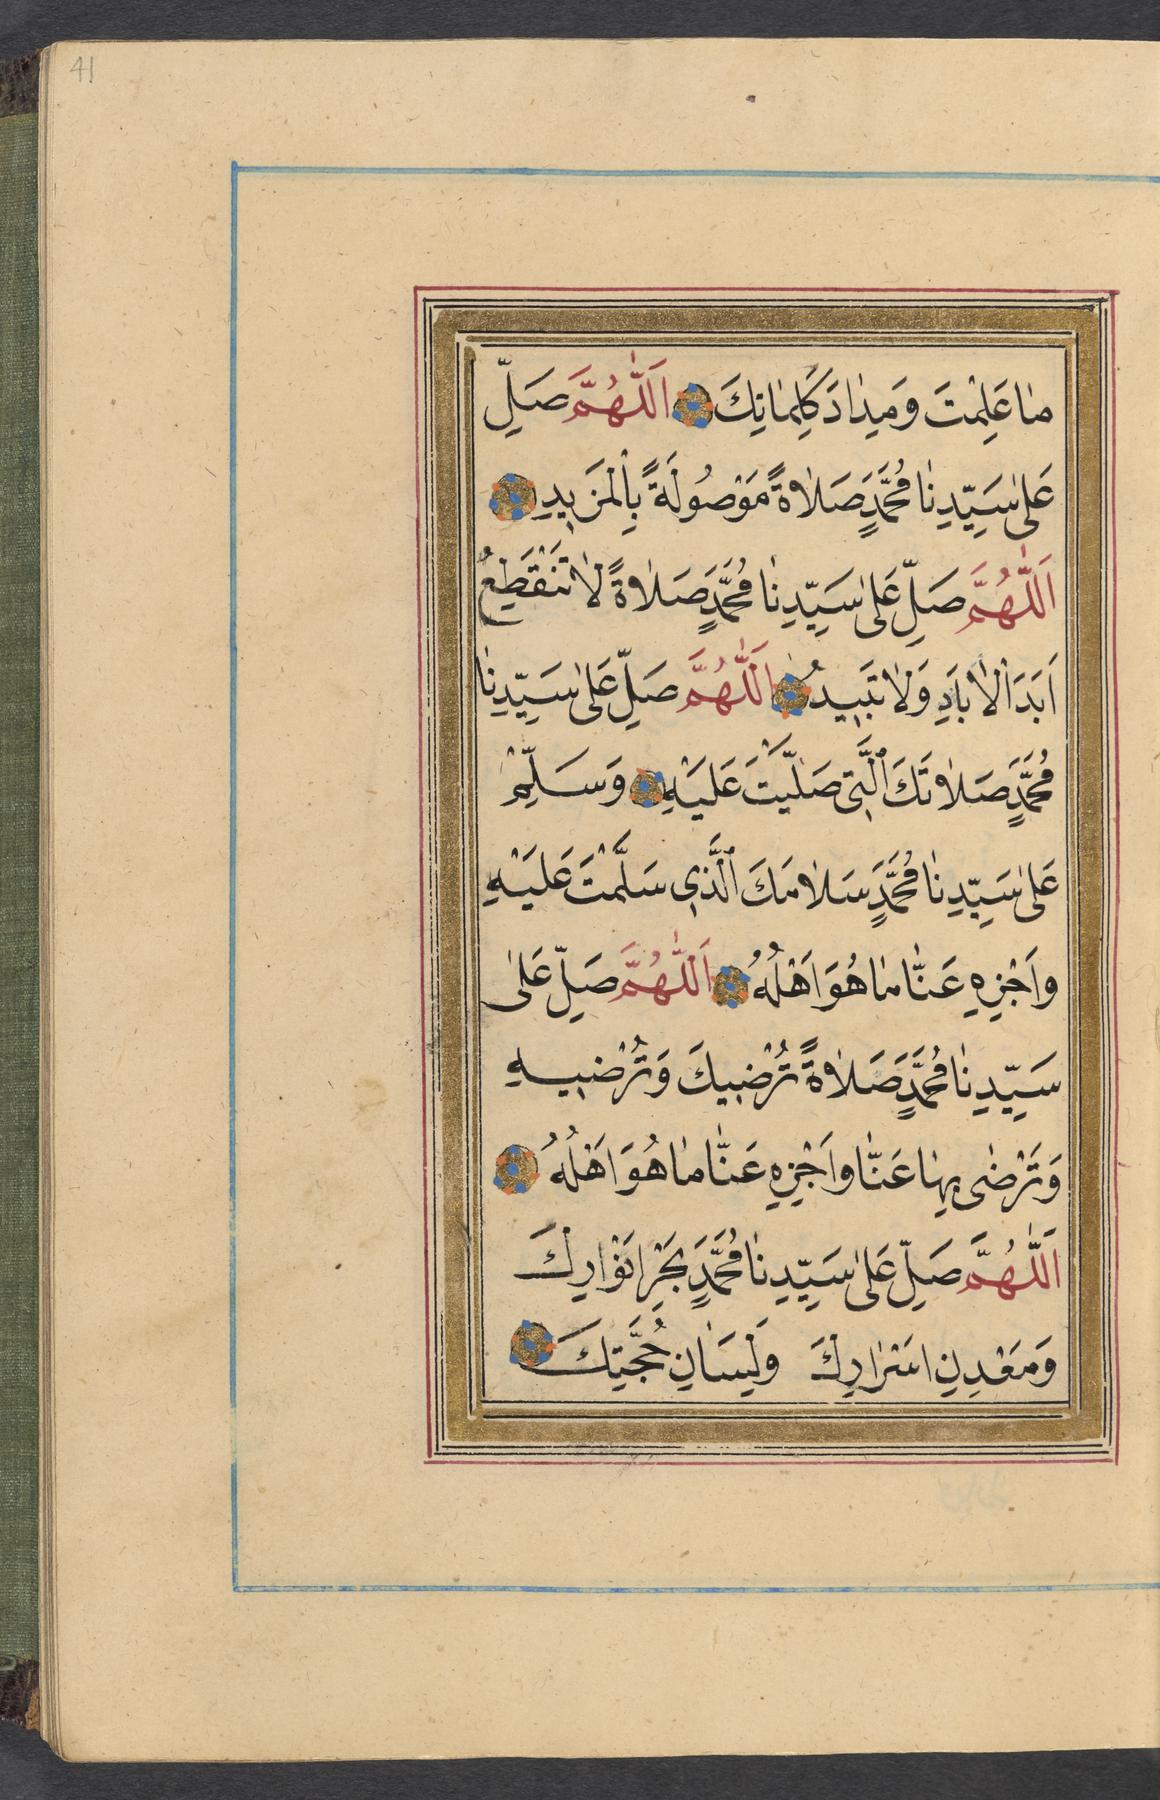 41
مَا عَلِمْتَ وَمِدَادَ كَلِمَاتِكَ اَللّٰهُمَّ صَلِّ
عَلٰى سَيِّدِنَا مُحَمَّدٍ صَلَاةً مَوْصُولَةً بِالْمَزِيدِ
اَللّٰهُمَّ صَلِّ عَلٰى سَيِّدِنَا مُحَمَّدٍ صَلَاةً لَا تَنْقَطِعُ
اَبَدَ الْاٰبَادِ وَلَا تَبِيدُ اَللّٰهُمَّ صَلِّ عَلٰى سَيِّدِنَا
مُحَمَّدٍ صَلَاتَكَ الَّتِي صَلَّيْتَ عَلَيْهِ وَسَلِّمْ
عَلٰى سَيِّدِنَا مُحَمَّدٍ سَلَامَكَ الَّذِي سَلَّمْتَ عَلَيْهِ
وَاَجْزِهِ عَنَّا مَا هُوَ اَهْلُهُ اَللّٰهُمَّ صَلِّ عَلٰى
سَيِّدِنَا مُحَمَّدٍ صَلَاةً تُرْضِيكَ وَتُرْضِيهِ
وَتَرْضٰى بِهَا عَنَّا وَاَجْزِهِ عَنَّا مَا هُوَ اَهْلُهُ
اَللّٰهُمَّ صَلِّ عَلٰى سَيِّدِنَا مُحَمَّدٍ بَحْرِ اَنْوَارِكَ
وَمَعْدِنِ اَسْرَارِكَ وَلِسَانِ حُجَّتِكَ